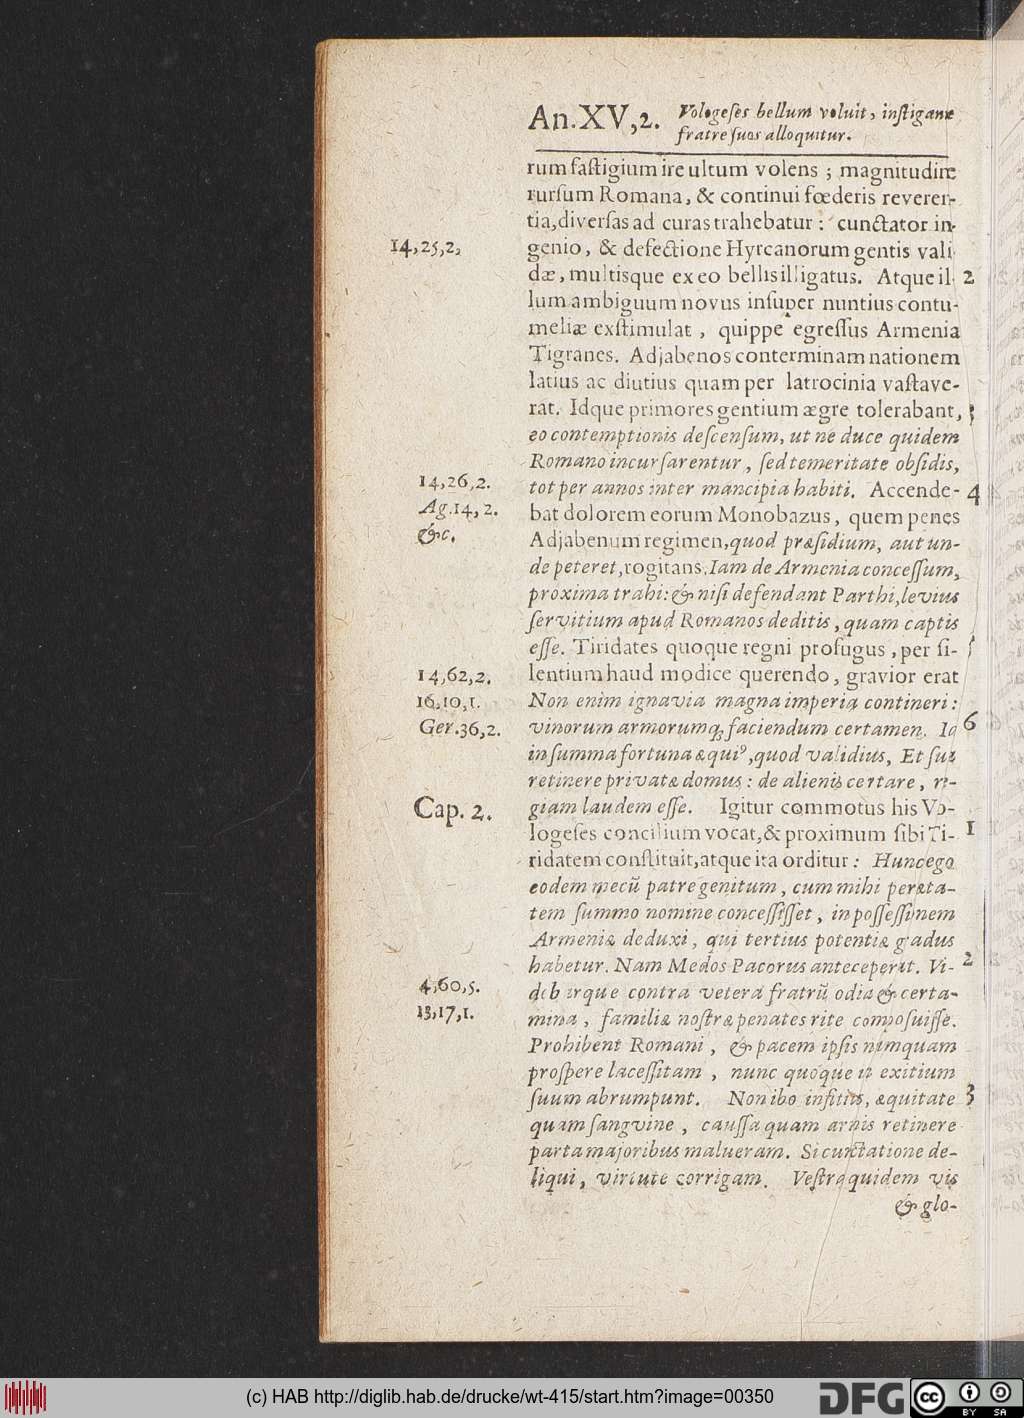 An. XV, 2. Vologeses bellum voluit, instigante
fratre suos alloquitur.
rum fastigium ire ultum volens ; magnitudine
rursum Romana, & continui fœderis reveren-
tia, diversas ad curas trahebatur : cunctator in-
14,25,2, genio, & defectione Hyrcanorum gentis vali
dæ, multisque ex eo bellis illigatus. Atque il- 2
lum ambiguum novus insuper nuntius contu-
meliæ exstimulat, quippe egressus Armenia
Tigranes. Adjabenos conterminam nationem
latius ac diutius quam per latrocinia vastave-
rat. Idque primores gentium ægre tolerabant, 3
eo contemptionis descensum, ut ne duce quidem
Romano incursarentur, sed temeritate obsidis,
14,26,2. tot per annos inter mancipia habiti. Accende- 4
Ag.14, 2. bat dolorem eorum Monobazus, quem penes
&c. Adjabenum regimen, quod præsidium, aut un-
de peteret, rogitans, Iam de Armenia concessum,
proxima trahi: & nisi defendant Parthi, levius
servitium apud Romanos deditis, quam captis
esse. Tiridates quoque regni profugus, per si-
14,62,2. lentium haud modice querendo, gravior erat
16,10,1. Non enim ignavia magna imperia contineri:
Ger.36,2. vinorum armorumq; faciendum certamen. Id 6
in summa fortuna æqui⁹, quod validius, Et sua
retinere privatæ domus: de alienis certare, re-
Cap. 2. giam laudem esse. Igitur commotus his Vo-
logeses concilium vocat, & proximum sibi Ti- 1
ridatem constituit, atque ita orditur: Hunc ego
eodem mecū patre genitum, cum mihi perata-
tem summo nomine concessisset, in possessionem
Armeniæ deduxi, qui tertius potentiæ gradus
habetur. Nam Medos Pacorus anteceperat. Vi- 2
4,60,5. debarque contra vetera fratrū odia & certa-
13,17,1. mina, familiæ nostræ penates rite composuisse.
Prohibent Romani, & pacem ipsis nunquam
prospere lacessitam, nunc quoque in exitium
suum abrumpunt. Non ibo infitias, æquitate 3
quam sangvine, caussa quam armis retinere
parta majoribus malueram. Si cunctatione de-
liqui, virtute corrigam. Vestra quidem vis
& glo-
(c) HAB http://diglib.hab.de/drucke/wt-415/start.htm?image=00350
DFG
cc BY SA